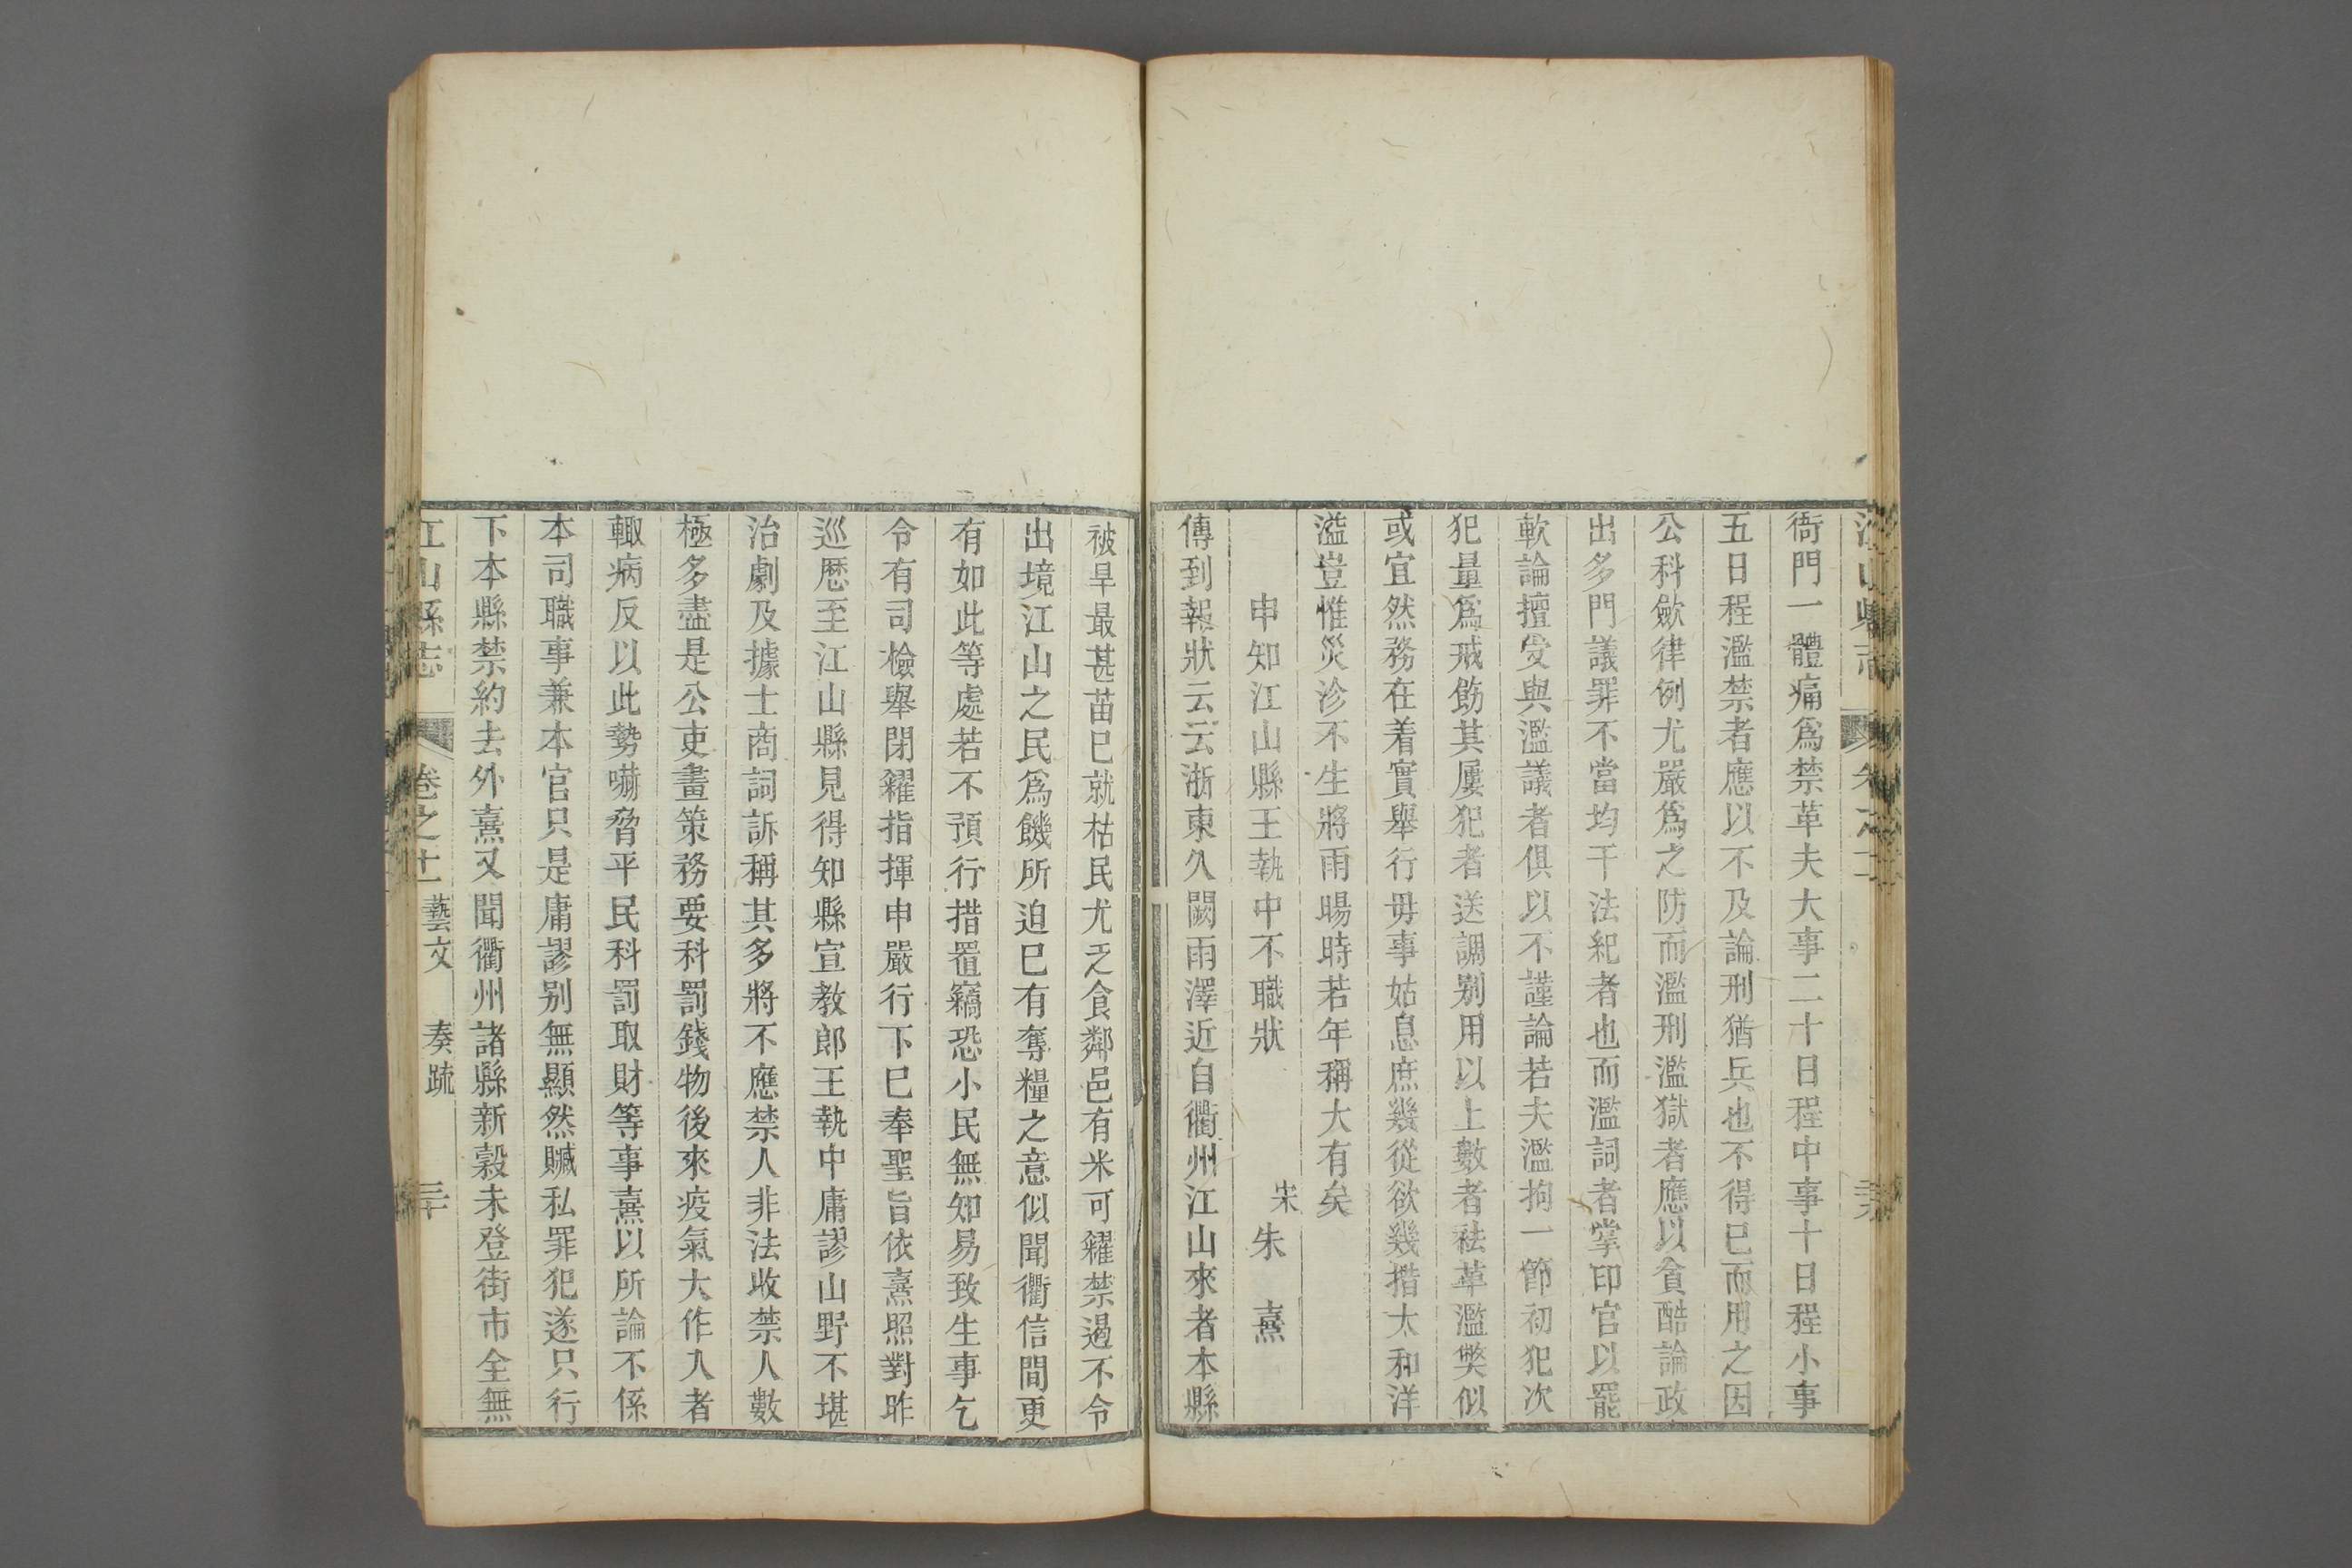 衙門一體痛爲禁革夫大事二十日程中事十日程小事
五日程濫禁者應以不及論刑猶兵也不得巳而用之因
公科歛律例尤嚴爲之防而濫刑濫獄者應以貪酷論政
出多門議罪不當均干法紀者也而濫詞者掌印官以罷
軟論擅受與濫議者俱以不謹論若夫濫拘一節初犯次
犯量爲戒飭其屢犯者送調别用以上數者袪革濫獘似
或宜然務在着實舉行毋事姑息庶幾從欲幾揩太和洋
溢豈惟災沴不生將雨暘時若年稱大有矣
申知江山縣王執中不職狀　宋朱熹
傳到報狀云云浙東久闕雨澤近自衢州江山來者本縣
被旱最甚苗巳就枯民尤乏食鄰邑有米可糴禁遏不令
出境江山之民爲饑所迫巳有奪糧之意似聞衢信間更
有如此等處若不預行措置竊恐小民無知易致生事乞
令有司檢舉閉糴指揮申嚴行下巳奉聖旨依熹照對昨
巡歷至江山縣見得知縣宣教郎王執中庸謬山野不堪
治劇及據士商詞訴稱其多將不應禁人非法收禁人數
極多盡是公吏畫策務要科罰錢物後來疫氣大作入者
輙病反以此勢嚇脅平民科罰取財等事熹以所論不係
本司職事兼本官只是庸謬别無顯然贓私罪犯遂只行
下本縣禁約去外熹又聞衢州諸縣新穀未登街市全無
江山縣志　卷之十一　藝文　奏疏　三十